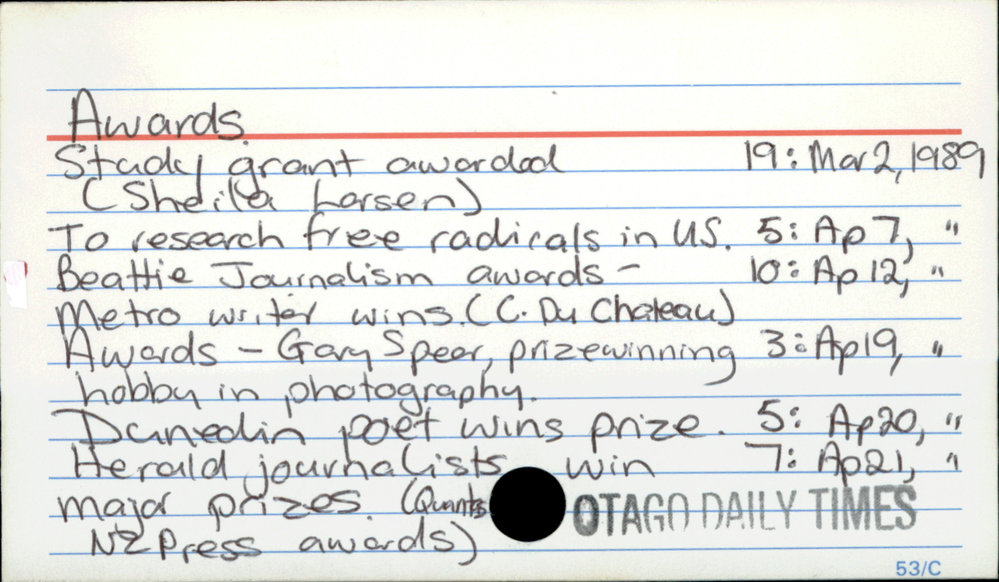 Awards.
Study grant awarded 19: Mar 2, 1989
(Sheila Larsen)
To research free radicals in US. 5: Ap 7, "
Beattie Journalism awards - 10: Ap 12, "
Metro writer wins. (C. Du Chateau)
Awards - Gary Speer, prizewinning 3: Ap 19, "
hobby in photography.
Dunedin poet wins prize. 5: Ap 20, "
Herald journalists win 7: Ap 21, "
major prizes. (Qantas
NZ Press awards)
OTAGO DAILY TIMES
53/C